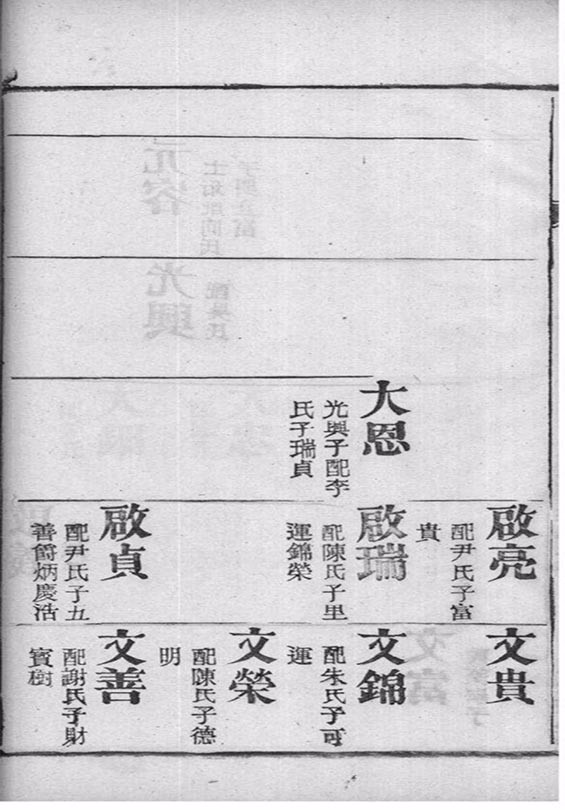 大恩
光興子配李
氏子瑞貞
啟亮
配尹氏子富
貴
啟瑞
配陳氏子里
運錦榮
啟貞
配尹氏子五
善爵炳慶浩
文貴
文錦
配朱氏子可
運
文榮
配陳氏子德
明
文善
配謝氏子財
賓樹